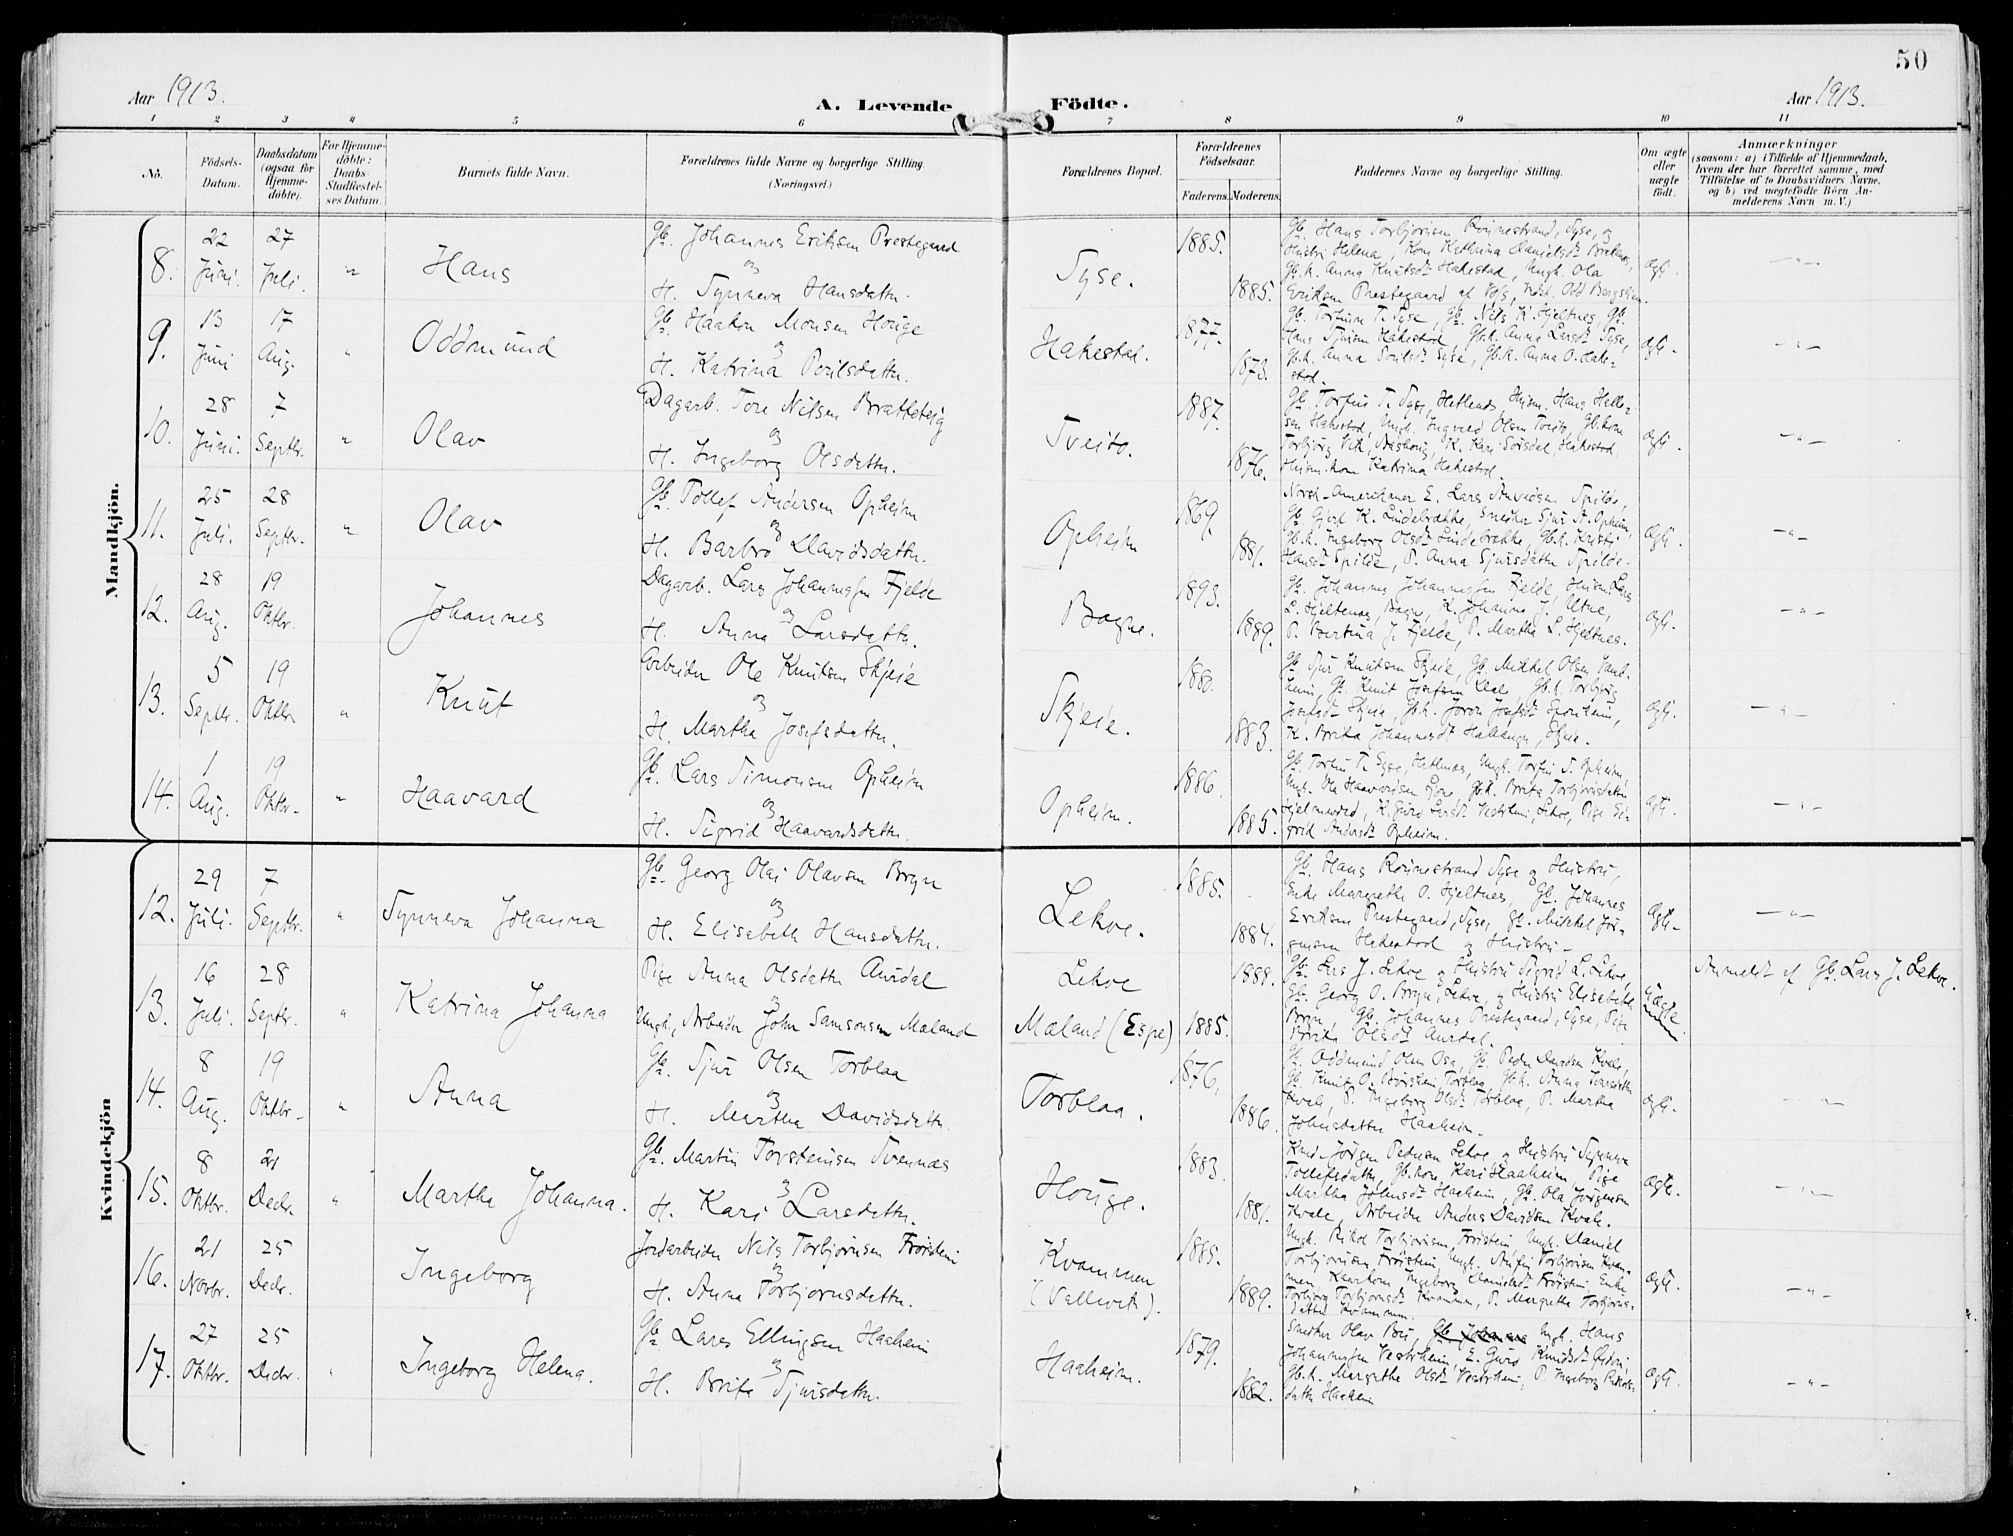 50
Aar 1913.
A. Levende Födte.
Aar 1913.
1 2 3 4 5 6 7 8 9 10 11
No.
Födsels-Datum.
Daabsdatum (ogsaa for Hjemme-döbte).
For Hjemme-döbte: Daabs-Stadfæstel-ses Datum.
Barnets fulde Navn.
Forældrenes fulde Navne og borgerlige Stilling (Næringsvei.)
Forældrenes Bopæl.
Forældrenes Födselsaar.
Faderens. Moderens.
Faddernes Navne og borgerlige Stilling.
Om ægte eller uægte födt.
Anmærkninger
(saasom: a) i Tilfælde af Hjemmedaab,
hvem der har forrettet samme, med
Tilföielse af to Daabsvidners Navne,
og b) ved uægtefödte Börn An-
melderens Navn m. V.)
Mandkjön.
8. 22 Juni. 27 Juli. " Hans
Gb. Johannes Eriksen Prestegaard
og
H. Synneva Hansdattr.
Syse. 1885. 1885.
Gb. Hans Torbjørnsen Røynestrand, Syse, og
Hustru Helena, Kone Kathrina Danielsdr
Gb.k. Anna Knutsdr Hakestad, Ungk. Ola
Eriksen Prestegaard af
ægt. — " —
9. 13 Juni 17 Aug. " Oddmund
Gb. Haakon Monsen Houge
og
H. Katrina Poulsdattr.
Hakestad. 1877. 1873.
Gb. Torfinn T. Syse, Gb. Nils K. Hjeltnes, Gb.
Hans Hakestad, Gb.k. Anna Larsdr Syse,
Gb.k. Anna Poulsdr Syse, Gb.k. Anna O. Hake-
stad.
ægt. — " —
10. 28 Juni. 7 Septbr. " Olav
Dagarb. Tore Nilsen Bratteteig
og
H. Ingeborg Olsdattr.
Tveito. 1887. 1876.
Gb. Torfin T. Syse, Hetlenes, Husm. Hans Helle-
sen Hakestad, Ungk. Ingvald Olsen Tveito, Gb.kone
Torbjørg Vik, K. Kari Hakestad
Husm.kone Katrina Hakestad.
ægt. — " —
11. 25 Juli. 28 Septbr. " Olav
Gb. Tollef Andersen Opheim
og
H. Barbro Davidsdattr.
Opheim 1869. 1881.
Norsk-Amerikaner E. Lars Spilde,
Gb. K. Lindebrække, Snedker Sjur Opheim,
Gb.k. Ingeborg Olsdr Lindebrække, Gb.k. Kristi
Hansdr Spilde, P. Anna Sjursdattr Spilde.
ægt. — " —
12. 28 Aug. 19 Oktbr. " Johannes
Dagarb. Lars Johannessen Fjelde
og
H. Anna Larsdattr.
Bagne. 1893. 1889.
Gb. Johannes Johannessen Fjelde, Husm. Lars
L. Hjeltenes, Bagne, K. Johanna J. Utne,
P. Bertina J. Fjelde, P. Martha L. Hjeltnes.
ægt. — " —
13. 5 Septbr. 19 Oktbr " Knut
Arbeider Ole Knutsen Skjeie
og
H. Martha Josefsdattr.
Skjeie. 1880. 1883.
Gb. Sjur Knutsen Skjeie, Gb. Mikkel Olsen Vam-
heim, Gb. Knut Josefsen Gb.k. Torbjørg
Josefsdr Skjeie, Gb.k. Joron Josefsdr Sponheim,
K. Brita Johannesdr Skjeie.
ægt. — " —
14. 1 Aug. 19 Oktbr. " Haavard
Gb. Lars Simonsen Opheim
og
H. Sigrid Haavardsdattr.
Opheim. 1886. 1885.
Gb. Torfin T. Syse, Hetlenes, Ungk. Torfin S. Opheim,
Ungk. Ole Haavardsen Gb.k. Brita Torbjørnsdattr
K. Guro Larsdr Lekve, Pige Si-
grid Andersdr Opheim.
ægt. — " —
Kvindekjön
12. 29 Juli. 7 Septbr. " Synneva Johanna
Gb. Georg Olai Olavsen Brgn
og
H. Elisabeth Hansdattr.
Lekve. 1885. 1884.
Gb. Hans Røynestrand Syse og Hustru,
Enke Margrethe O. Hjeltnes, Gb. Johannes
Eriksen Prestegaard, Syse, Gb. Mikkel Jør-
gensen Hakestad og Hustru—
ægt. — " —
13. 16 Juli. 28 Septbr. " Katrina Johanna
Pige Anna Olsdattr Aurdal
og
Ungk. Arbeider John Samsonsen Mæland
Lekve 1888.
Mæland (Espe) 1885.
Gb. Lars J. Lekve og Hustru Sigrid L. Lekve,
Gb. Georg O. Lekve, og Hustru Elisabeth
Gb. Johannes Prestegaard, Syse, Pige
Brita Olsdr Aurdal.
Uægte.
Anmeldt af Gb. Lars J. Lekve.
14. 8 Aug. 19 Oktbr. " Anna
Gb. Sjur Olsen Torblaa
og
H. Martha Davidsdattr.
Torblaa. 1876. 1886.
Gb. Oddmund Olsen Osa, Gb. Peder Davidsen Kvale,
Gb. Knut O. Torblaa, Gb.k. Anna
Kvale, P. Ingeborg Olsdr Torblaa, P. Martha
Johnsdattr Haaheim.
ægt. — " —
15. 8 Oktbr. 21 Decbr. " Martha Johanna.
Gb. Martin Torsteinsen Svennæs
og
H. Kari Larsdattr.
Houge. 1883. 1881.
Jörgen Pedersen Lekve og Hustru Synneva
Tollefsdattr, Gb.kone Kari Haaheim, Pige
Martha Johnsdr Haaheim, Gb. Ola Jörgensen
Kvale, Arbeider Anders Davidsen Kvale.
ægt. — " —
16. 21 Novbr. 25 Decbr. Ingeborg
Jordarbeider Nils Torbjørnsen Frøistein
og
H. Anna Torbjørnsdattr.
Kvammen
(Vallevik). 1885. 1889.
Ungk. Rikol Torbjørnsen Frøistein, Ungk. Daniel
Torbjørnsen Frøistein, Ungk. Torbjørnsen Kvam-
men, Ingeborg Danielsdr Frøistein, Enke
Torbjørg Torbjørnsdr Kvammen, P. Margretha Torbjørns-
dattr Kvammen.
ægt. — " —
17. 27 Oktbr. 25 Decbr. " Ingeborg Helena.
Gb. Lars Ellingsen Haaheim
og
H. Brita Sjursdattr.
Haaheim. 1879. 1882.
Snedker Olav Bu, Gb. Johannes Ungk. Hans
Johannessen Vestrheim, E. Guro Knudsdr
Gb.k. Margrethe Olsdr Vestrheim, P. Ingeborg Rikols-
dattr Haaheim
ægt. — " —